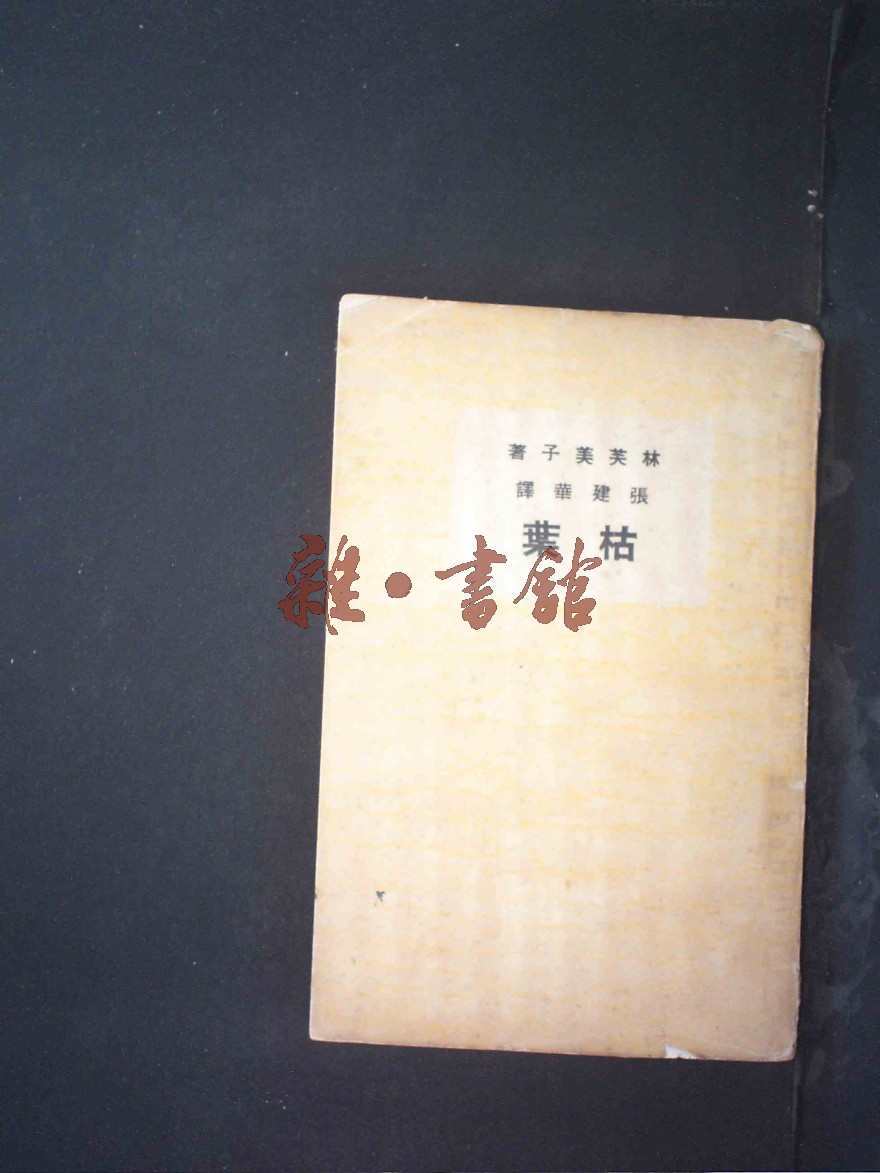 林芙美子著
張建華譯
枯葉
雜·書館